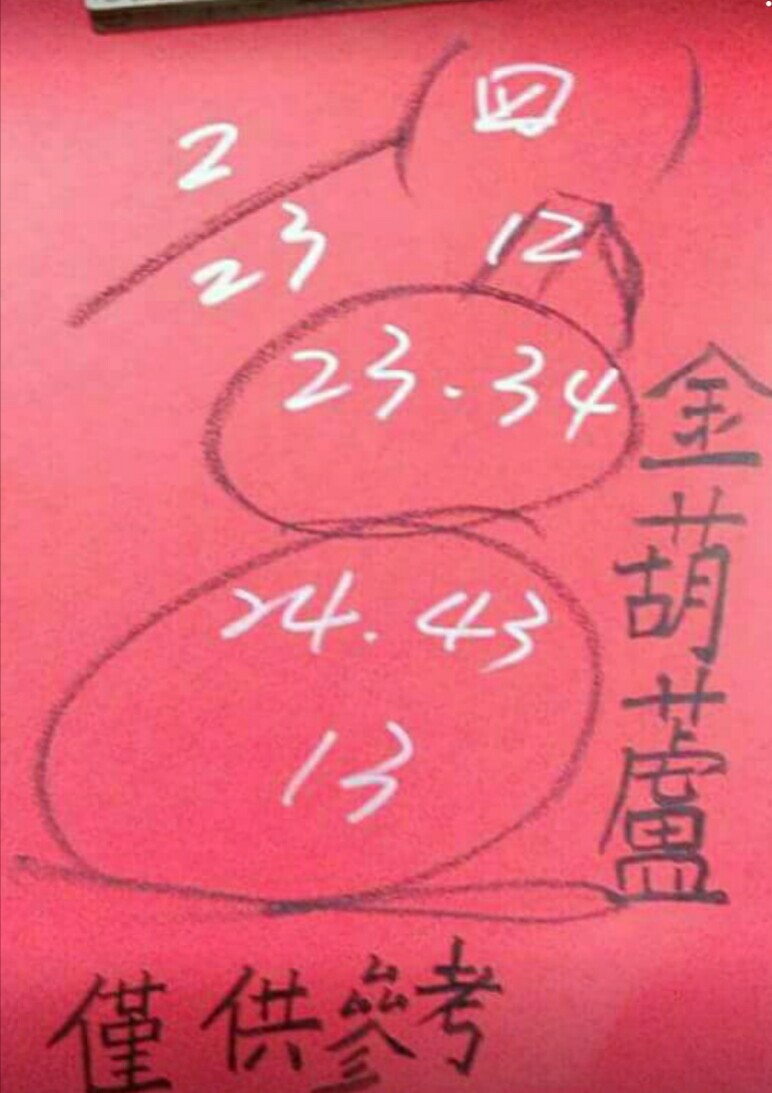 四
2
23
12
23.34
24.43
13
金葫蘆
僅供參考